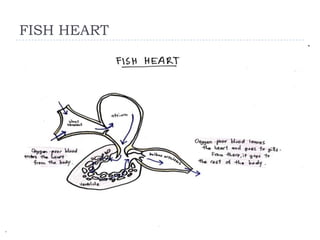 FISH HEART
FISH HEART
atrium
sinus
venosus
Oxygen-poor blood
enters the heart
from the body.
bulbus arteriosus
Oxygen-poor blood leaves
the heart and goes to gills.
From there, it goes to
the rest of the body.
ventricle